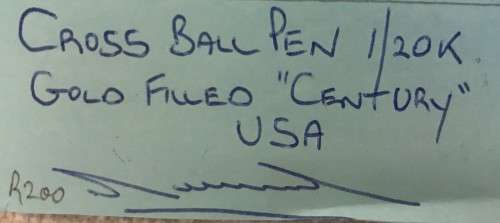 CROSS BALL PEN 1/20K
GOLD FILLED "CENTURY"
USA
R200